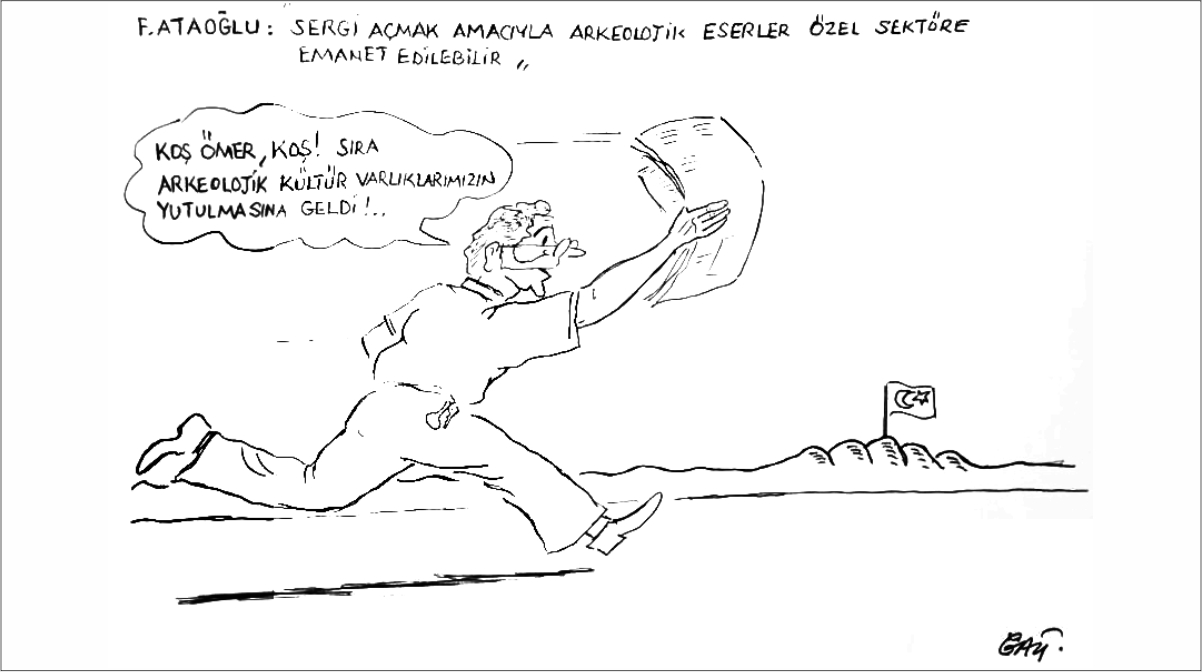 F.ATAOĞLU: SERGİ AÇMAK AMACIYLA ARKEOLOJİK ESERLER ÖZEL SEKTÖRE
EMANET EDİLEBİLİR „
KOŞ ÖMER, KOŞ! SIRA
ARKEOLOJİK KÜLTÜR VARLIKLARIMIZIN
YUTULMASINA GELDİ!..